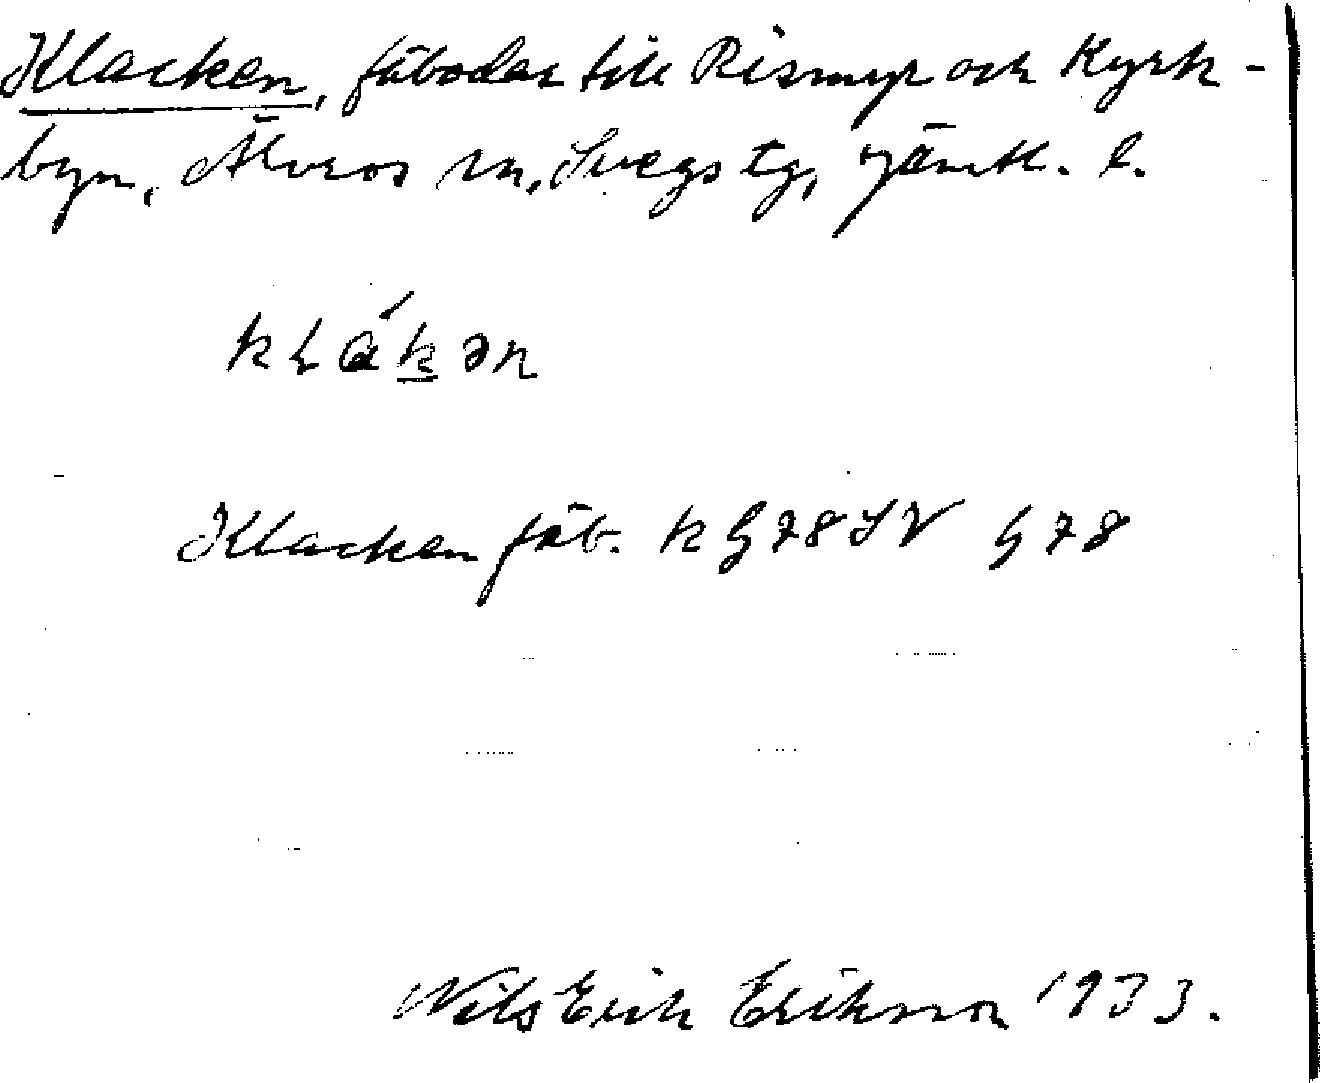 Klacken, fäbodar till Rismyr och Kyrk-
byn, Älvros sn, Svegs tg, Jämtl. l.
kɽák̲ən
Klacken fäb. k G 78 SV G 78
Nils Erik Erikson 1933.